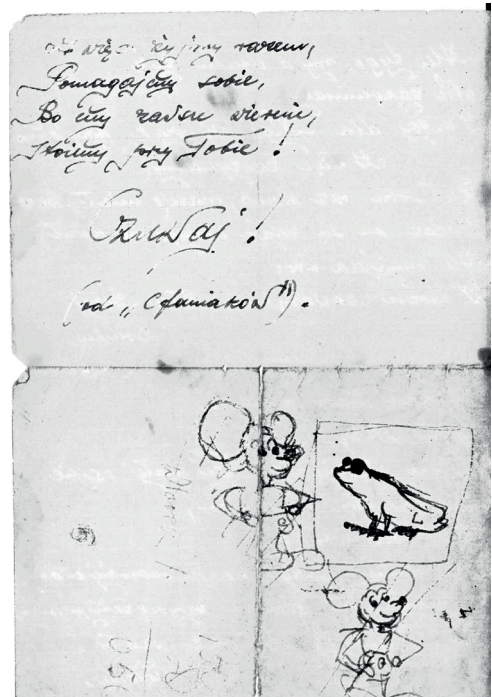 więc żyjmy razem,
Pomagajmy sobie,
Bo my zawsze wiernie,
Stoimy przy Tobie!
Czuwaj!
(od „Cfaniaków").